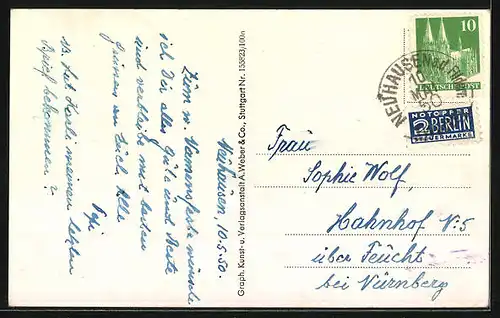 Neuhausen, 10.5.50.
Zum w. Namensfeste wünsche
ich Dir alles Gute und Beste
und verbleibe mit besten
Grüssen an Euch Alle
Pepi
13. hat Harli meinen letzten
Brief bekommen?
Graph. Kunst- u. Verlagsanstalt A. Weber & Co., Stuttgart Nr. 135823/100n
10
DEUTSCHE POST
NEUHAUSEN a.d.
10
50
NOTOPFER
2 BERLIN
STEUERMARKE
Frau
Sophie Wolf,
Hahnhof N. 5
über Feücht
bei Nürnberg